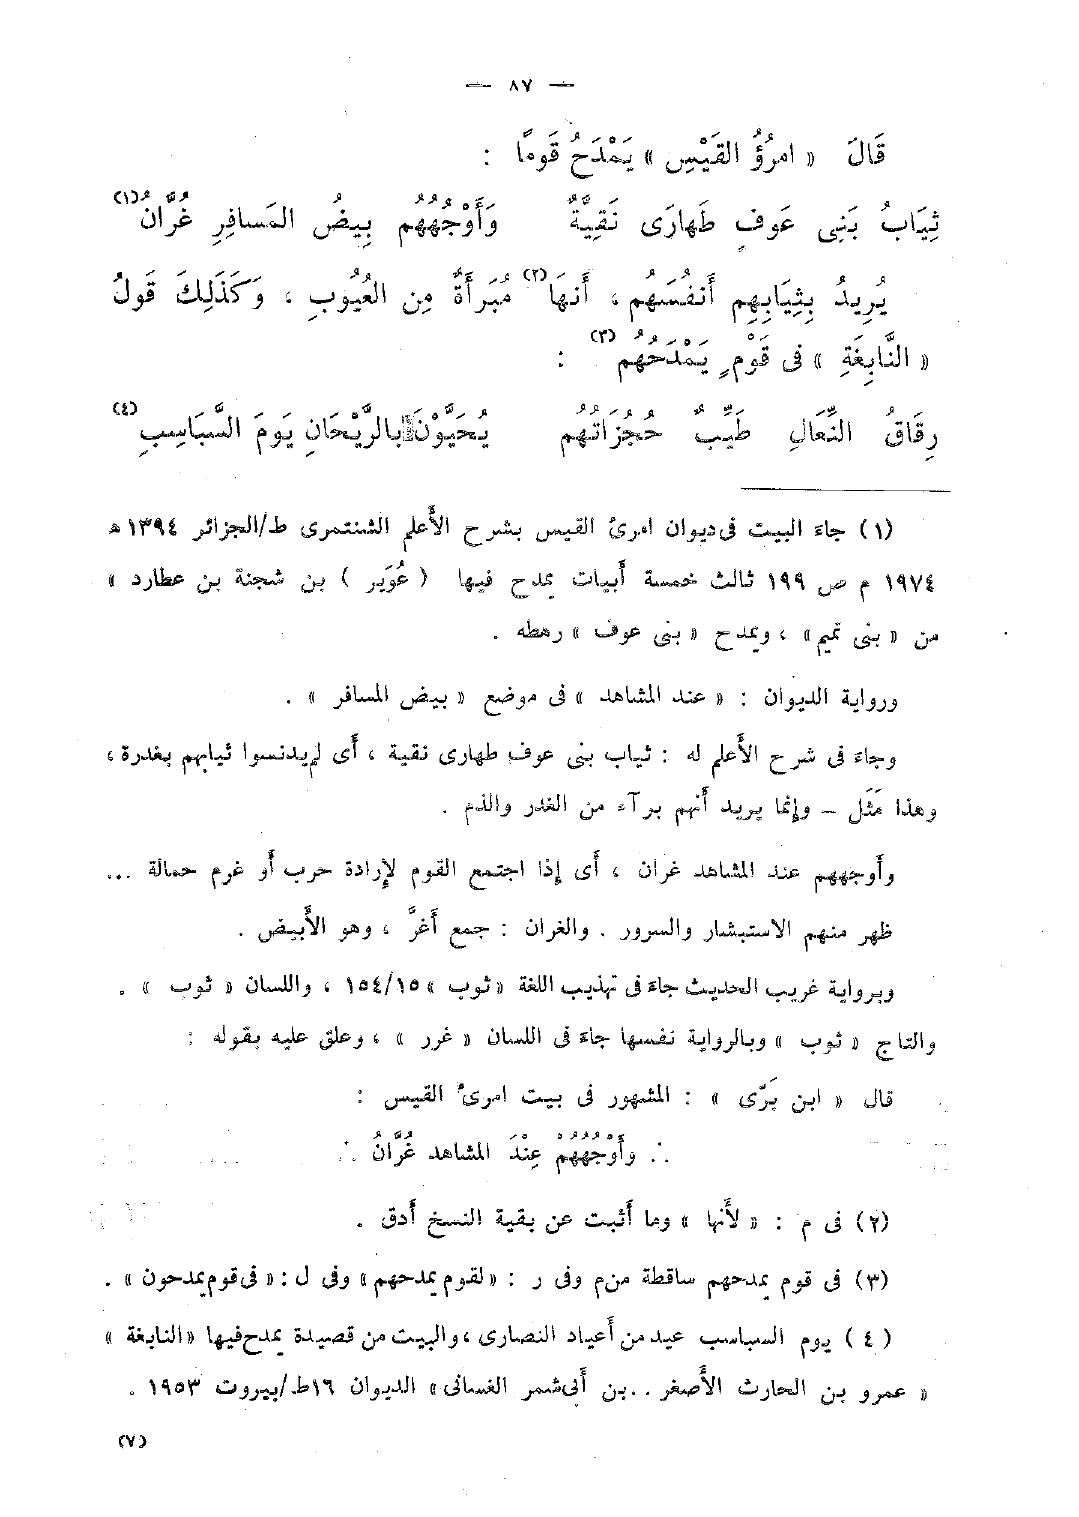 — ٨٧ —
قَالَ « امرُؤُ القَيْسِ » يَمْدَحُ قَومًا :
ثِيَابُ بَنِى عَوفٍ طَهارَى نَقِيَّةٌ وَأَوْجُهُهُم بِيضُ المَسافِرِ غُرَّانُ(١)
يُرِيدُ بِثِيَابِهِم أَنفُسَهُم ، أَنهَا(٢) مُبَرأَةٌ مِن العُيُوبِ ، وَكَذَلِكَ قَولُ
« النَّابِغَةِ » فى قَوْمٍ يَمْدَحُهُم(٣) :
رِقَاقُ النِّعَالِ طَيِّبٌ حُجُزَاتُهُم يُحَيَّوْنَ بالرَّيْحَانِ يَومَ السَّبَاسِبِ(٤)
(١) جاءَ البيت فى ديوان امرئ القيس بشرح الأَعلم الشنتمرى ط/الجزائر ١٣٩٤ هـ
١٩٧٤ م ص ١٩٩ ثالث خمسة أَبيات يمدح فيها ( عُوَير ) بن شجنة بن عطارد »
من « بنى تميم » ، ويمدح « بنى عوف » رهطه .
ورواية الديوان : « عند المشاهد » فى موضع « بيض المسافر » .
وجاءَ فى شرح الأَعلم له : ثياب بنى عوف طهارى نقية ، أَى لم يدنسوا ثيابهم بغدرة ،
وهذا مَثَل – وإنما يريد أَنهم برآء من الغدر والذم .
وأَوجههم عند المشاهد غران ، أَى إذا اجتمع القوم لإرادة حرب أَو غرم حمالة ...
ظهر منهم الاستبشار والسرور . والغران : جمع أَغرَّ ، وهو الأَبيض .
وبرواية غريب الحديث جاءَ فى تهذيب اللغة «ثوب » ١٥٤/١٥ ، واللسان « ثوب » .
والتاج « ثوب » وبالرواية نفسها جاءَ فى اللسان « غرر » ، وعلق عليه بقوله :
قال « ابن بَرّى » : المشهور فى بيت امرئُ القيس :
∴ وأَوْجُهُهُمْ عِنْدَ المشاهد غُرَّانُ ∴
(٢) فى م : « لأَنها » وما أَثبت عن بقية النسخ أَدق .
(٣) فى قوم يمدحهم ساقطة من م وفى ر : «لقوم يمدحهم» وفى ل : « فى قوم يمدحون » .
( ٤ ) يوم السباسب عيد من أَعياد النصارى ، والبيت من قصيدة يمدح فيها «النابغة »
« عمرو بن الحارث الأَصغر .. بن أَبى شمر الغسانى» الديوان ١٦ط/بيروت ١٩٥٣ .
(٧)